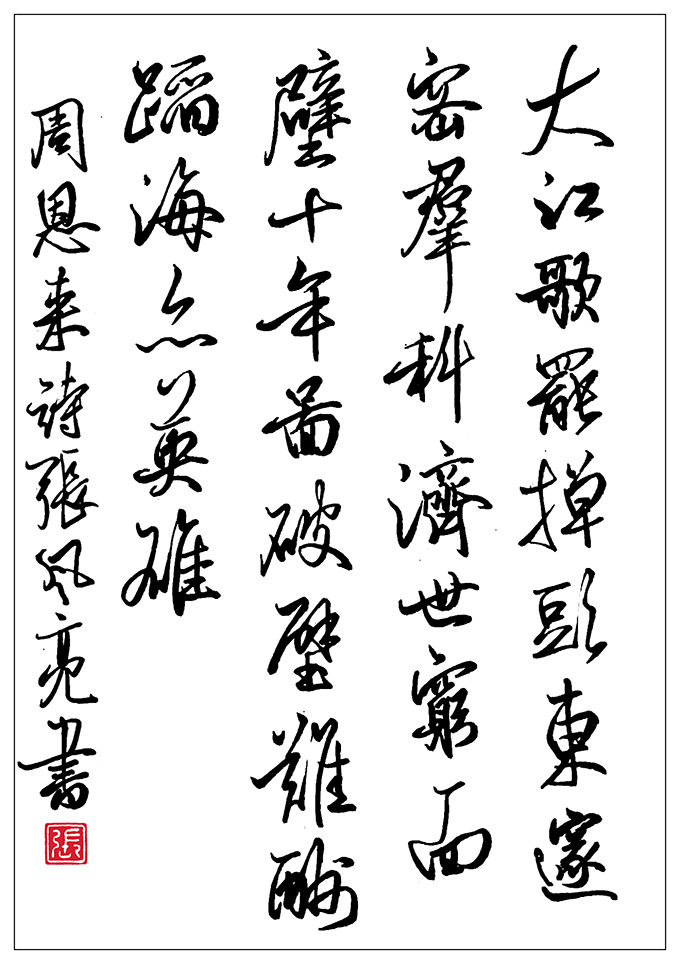 大江歌罷掉頭東邃
密羣科濟世窮面
壁十年圖破壁難酬
蹈海亦英雄
周恩来詩張風亮書
張